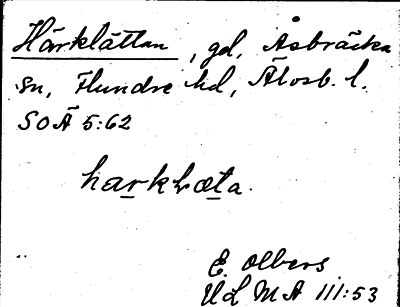 Härklättan, gd, Åsbräcka
sn, Flundre hd, Älvsb. l.
SOÄ 5:62
harkhæta.
E. Olbers
Ud MA III:53